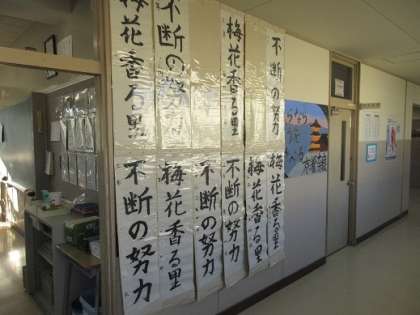 不断の努力
梅花香る里
不断の努力
梅花香る里
梅花香る里
梅花香る里
不断の努力
不断の努力
梅花香る里
不断の努力